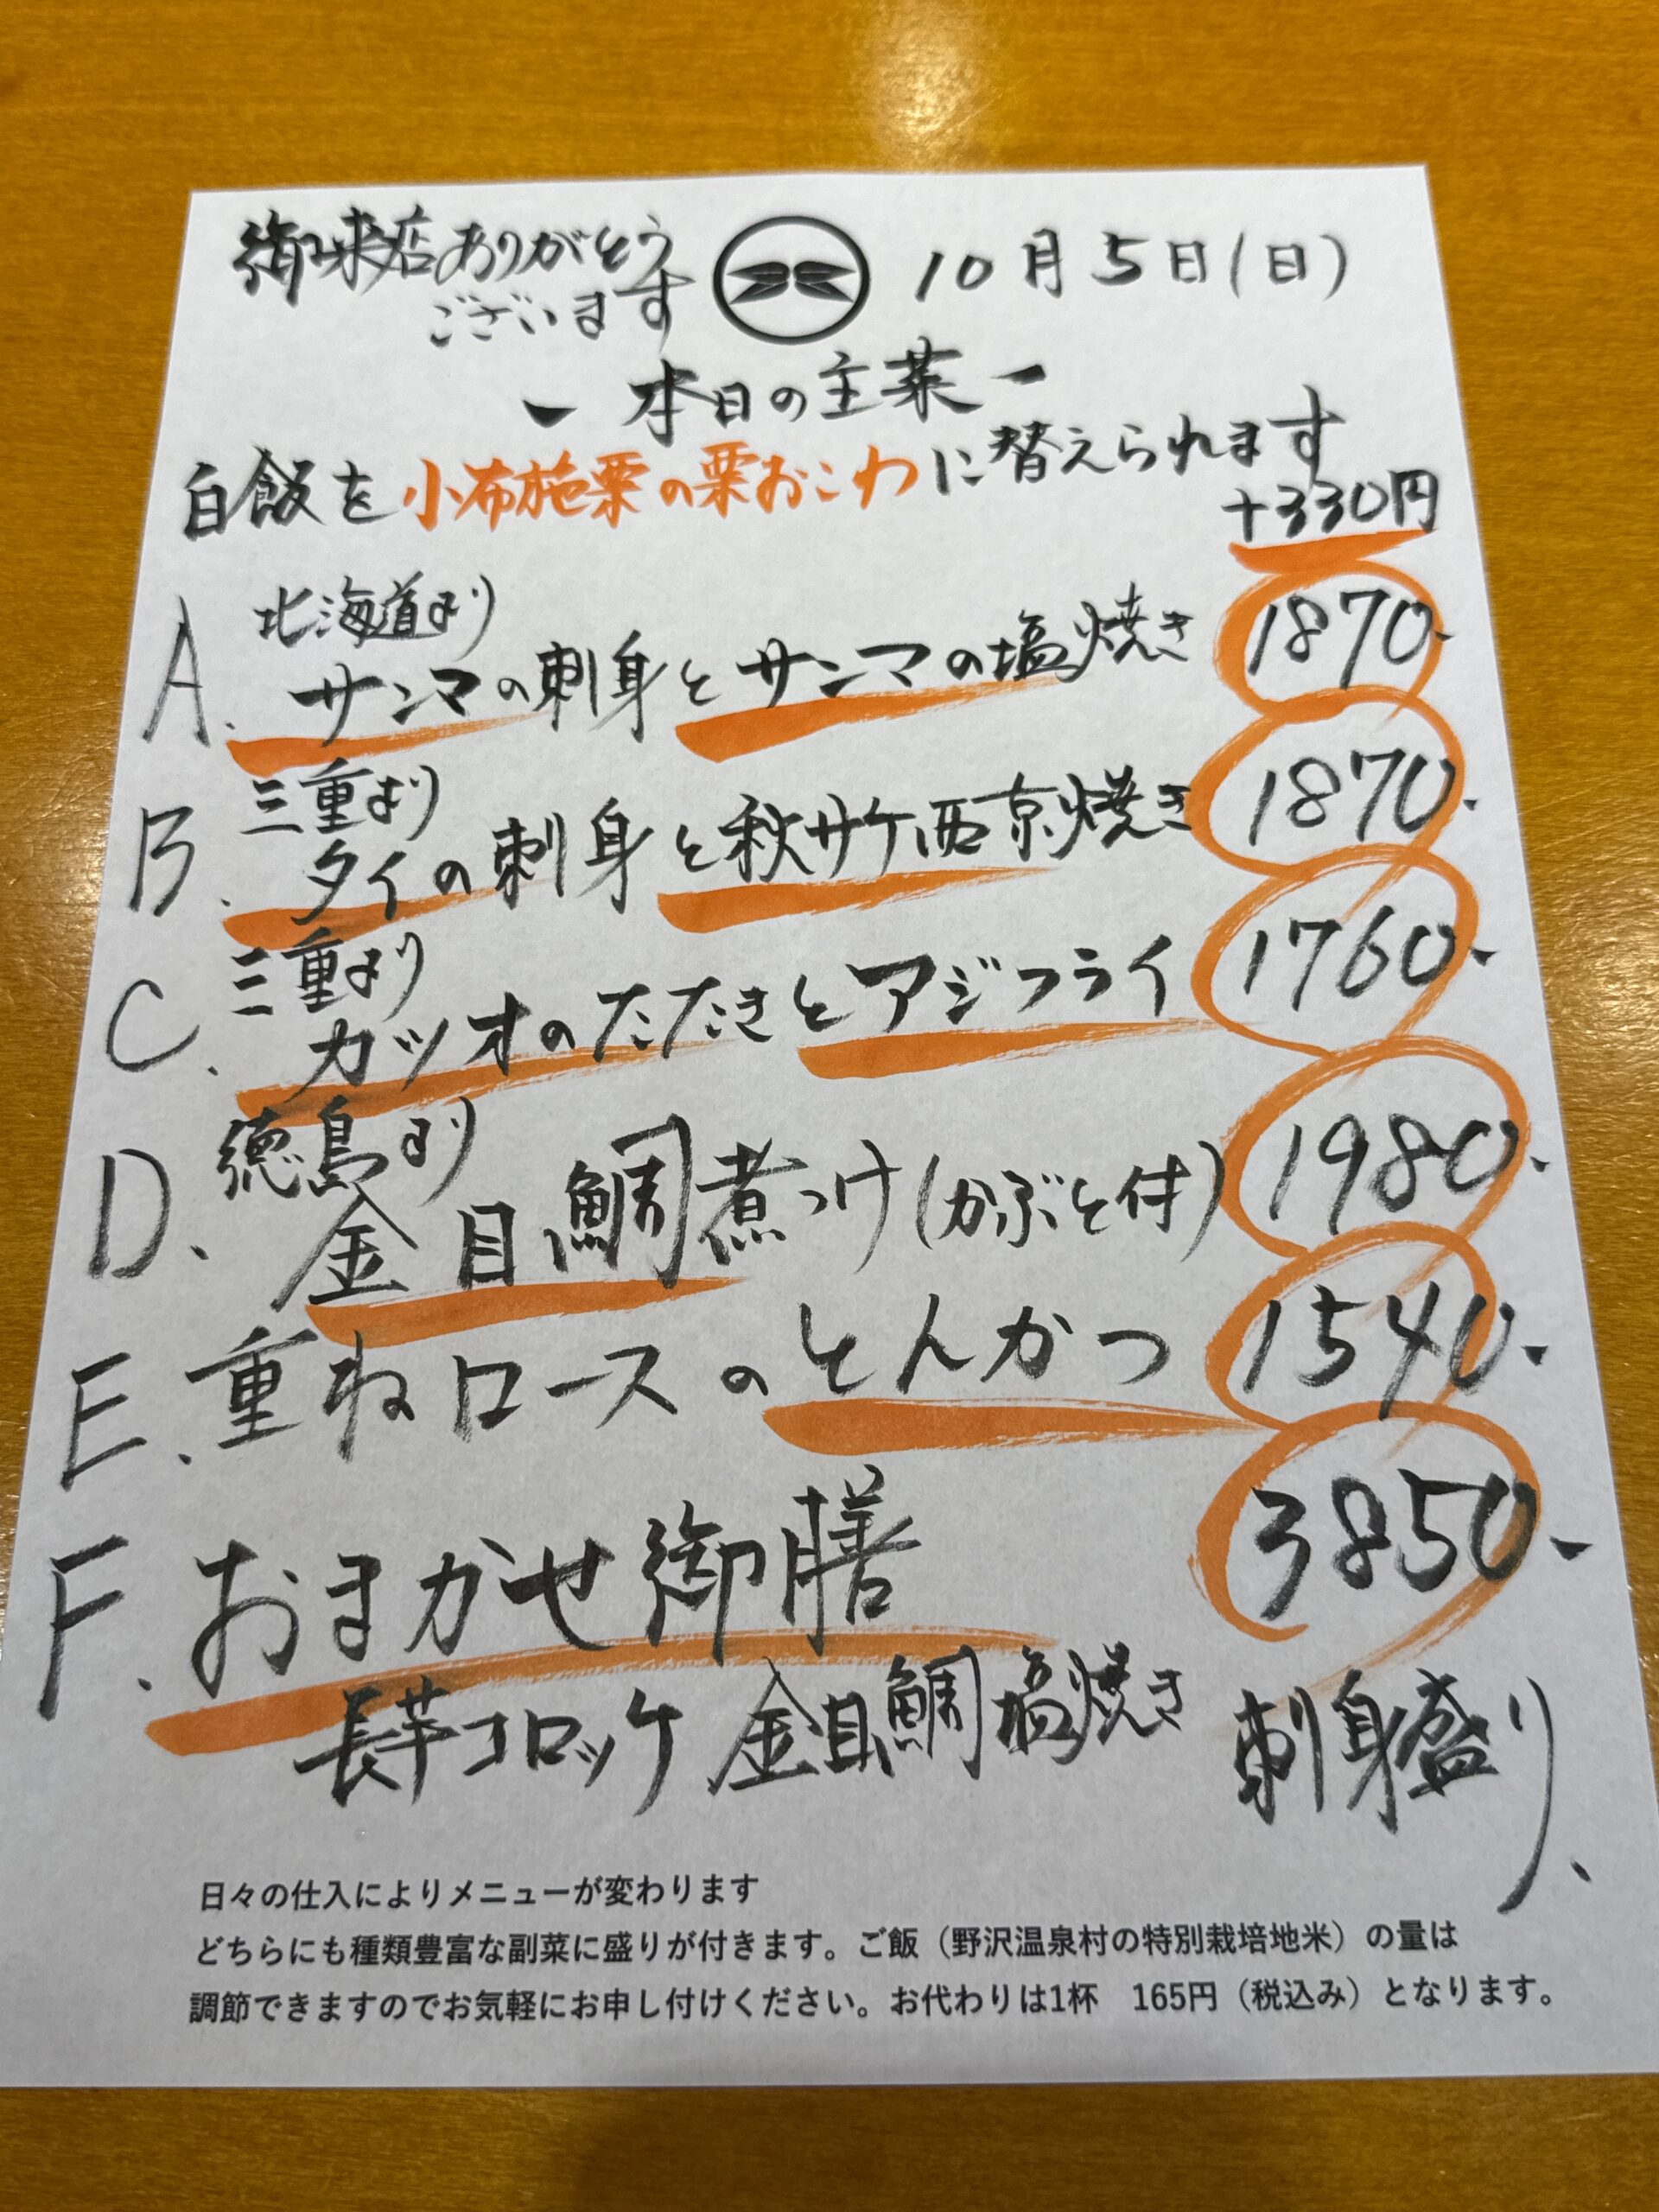 御来店ありがとう
ございます
10月5日(日)
ー 本日の主菜 ー
白飯を小布施栗の栗おこわに替えられます
+330円
A. 北海道より
サンマの刺身とサンマの塩焼き 1870-
B. 三重より
タイの刺身と秋サケ西京焼き 1870-
C. 三重より
カツオのたたきとアジフライ 1760-
D. 徳島より
金目鯛煮つけ(かぶと付) 1980-
E. 重ねロースのとんかつ 1540-
F. おまかせ御膳 3850-
長芋コロッケ 金目鯛塩焼き 刺身盛り、
日々の仕入によりメニューが変わります
どちらにも種類豊富な副菜に盛りが付きます。ご飯（野沢温泉村の特別栽培地米）の量は
調節できますのでお気軽にお申し付けください。お代わりは1杯 165円（税込み）となります。